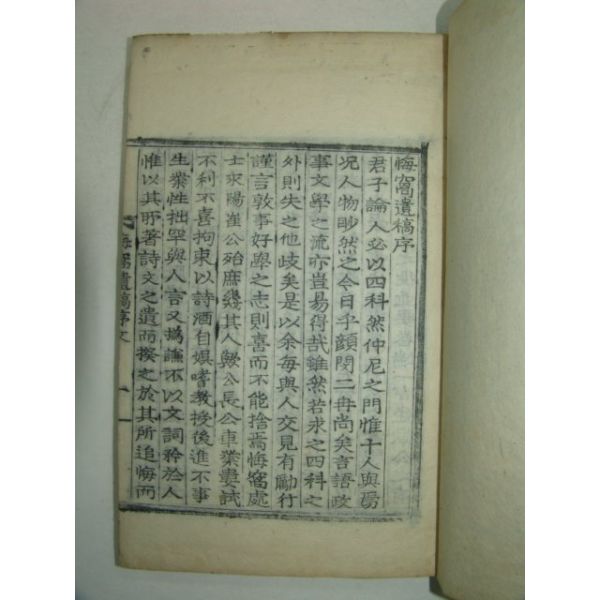 悔窩遺稿序
君子論人必以四科然仲尼之門惟十人與焉
况人物眇然之今日乎顔閔二冉尚矣言語政
事文學之流亦豈易得哉雖然若求之四科之
外則失之他歧矣是以余每與人交見有勵行
謹言敦事好學之志則喜而不能捨焉悔窩處
士求陽崔公殆庶幾其人歟公長公車業婁試
不利不喜拘束以詩酒自娛嗜教授後進不事
生業性拙罕與人言又撝謙不以文詞矜於人
惟以其所著詩文之遺而揆之於其所追悔而
悔窩遺稿序文 一